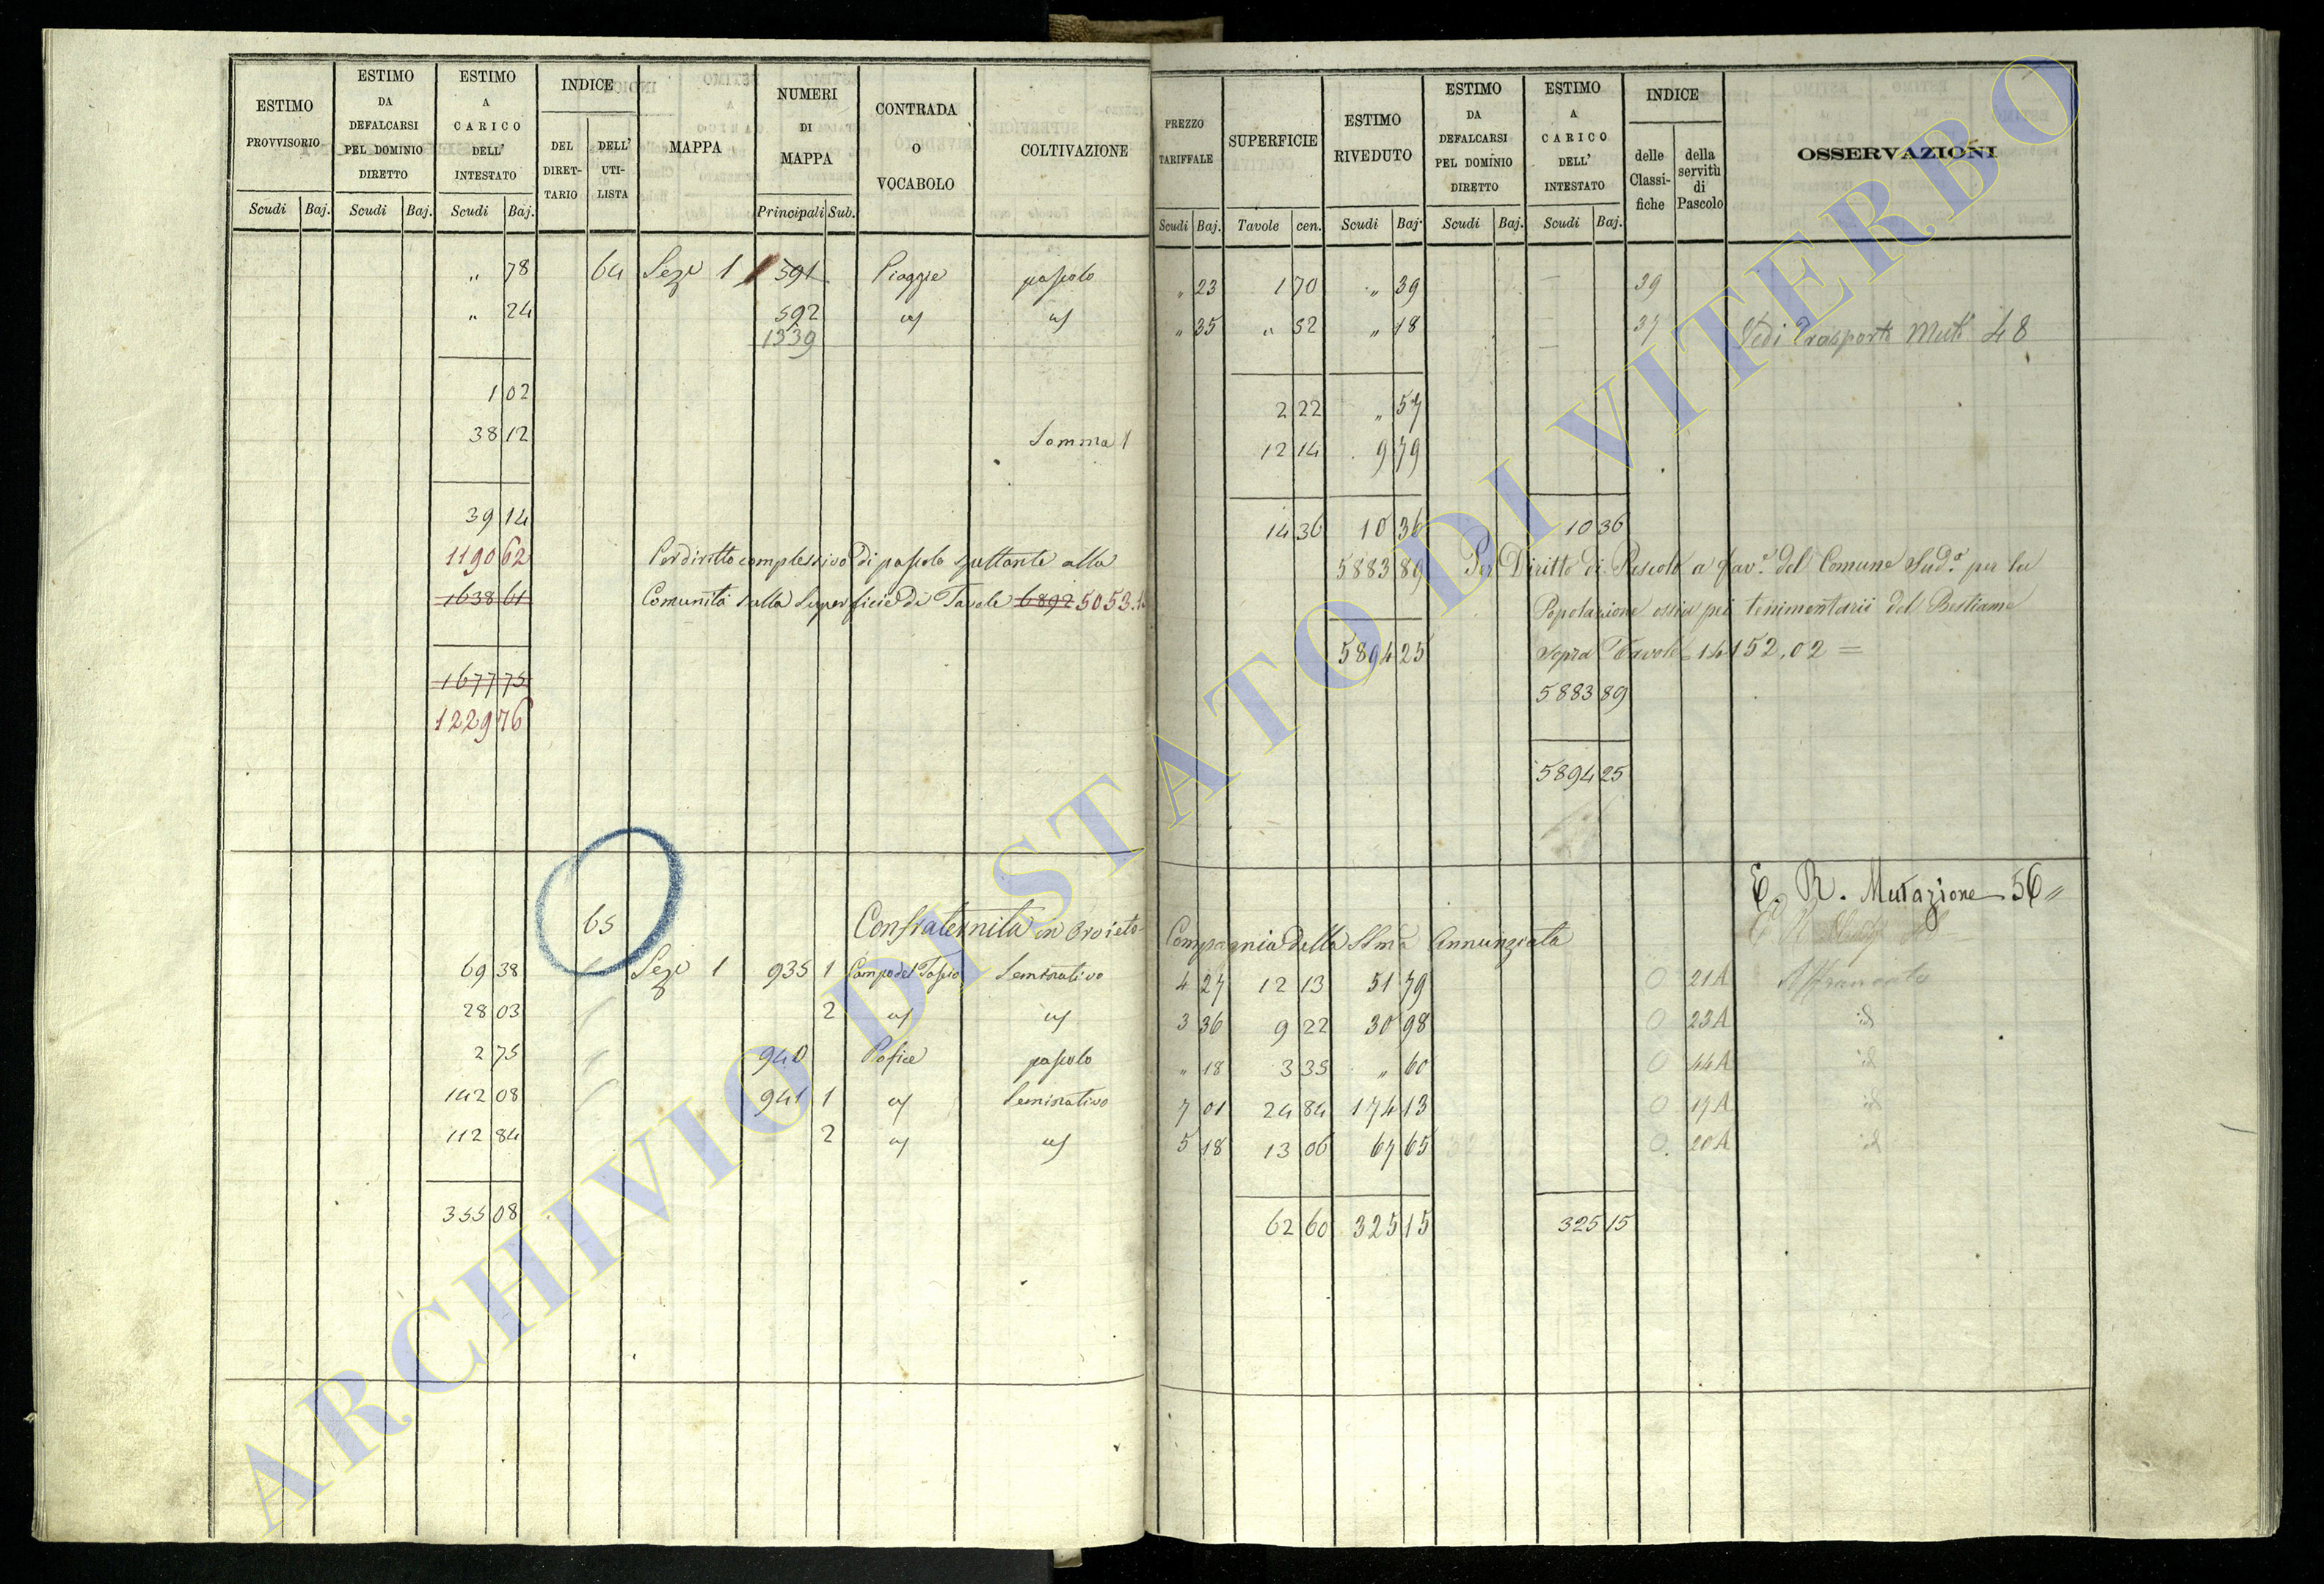 ESTIMO PROVVISORIO
Scudi Baj.
ESTIMO DA DEFALCARSI PEL DOMINIO DIRETTO
Scudi Baj.
ESTIMO A CARICO DELL' INTESTATO
Scudi Baj.
INDICE
DEL DIRET-TARIO
DELL' UTI-LISTA
MAPPA
NUMERI DI MAPPA
Principali Sub.
CONTRADA O VOCABOLO
COLTIVAZIONE
PREZZO TARIFFALE
Scudi Baj.
SUPERFICIE
Tavole cen.
ESTIMO RIVEDUTO
Scudi Baj.
ESTIMO DA DEFALCARSI PEL DOMINIO DIRETTO
Scudi Baj.
ESTIMO A CARICO DELL' INTESTATO
Scudi Baj.
INDICE
delle Classi-fiche
della servitù di Pascolo
OSSERVAZIONI
„ 78 64 Sez.e 1 591 Piaggie pascolo „ 23 1 70 „ 39 39
„ 24 592 id id „ 35 „ 52 „ 18 37 Vedi Trasporti Mut. 48
1339
1 02 2 22 „ 57
38 12 Somma 1 12 14 9 79
39 14 14 36 10 36 10 36
1190 62 Per diritto complessivo di pascolo spettante alla 5883 89 Per Diritto di Pascolo a fav.e del Comune Sud.o per la
1638 61 Comunità sulla Superficie di Tavole 6892 5053. Popolazione ossia pei tenimentarii del Bestiame
5894 25 sopra Tavole 14152,02 =
1677 75 5883 89
1229 76
5894 25
E. R. Mutazione 56 „
65 Confraternita in Orvieto Compagnia della SSma Annunziata
69 38 Sez.e 1 935 1 Campo del Seminativo 4 27 12 13 51 79 0 21A Affrancato
28 03 2 id id 3 36 9 22 30 98 0 23A id
2 75 940 pascolo „ 18 3 35 „ 60 0 44A id
142 08 941 1 id Seminativo 7 01 24 84 174 13 0 17A id
112 84 2 id id 5 18 13 06 67 65 0 20A id
355 08 62 60 325 15 325 15
ARCHIVIO DI STATO DI VITERBO